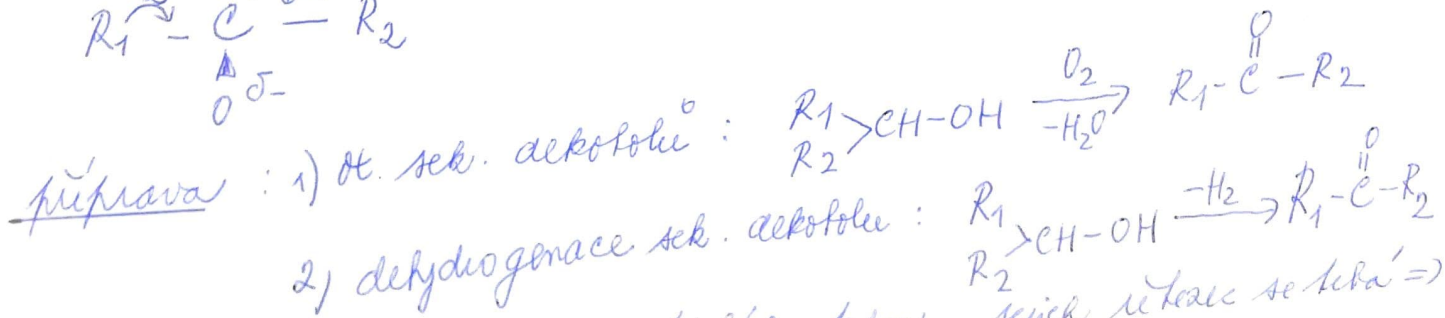 R1 - C - R2
O δ-
příprava : 1) ox. sek. alkoholů : R1 R2 >CH-OH O2 → -H2O R1-C(=O)-R2
2) dehydrogenace sek. alkoholu : R1 R2 >CH-OH -H2 → R1-C(=O)-R2
řetězec se